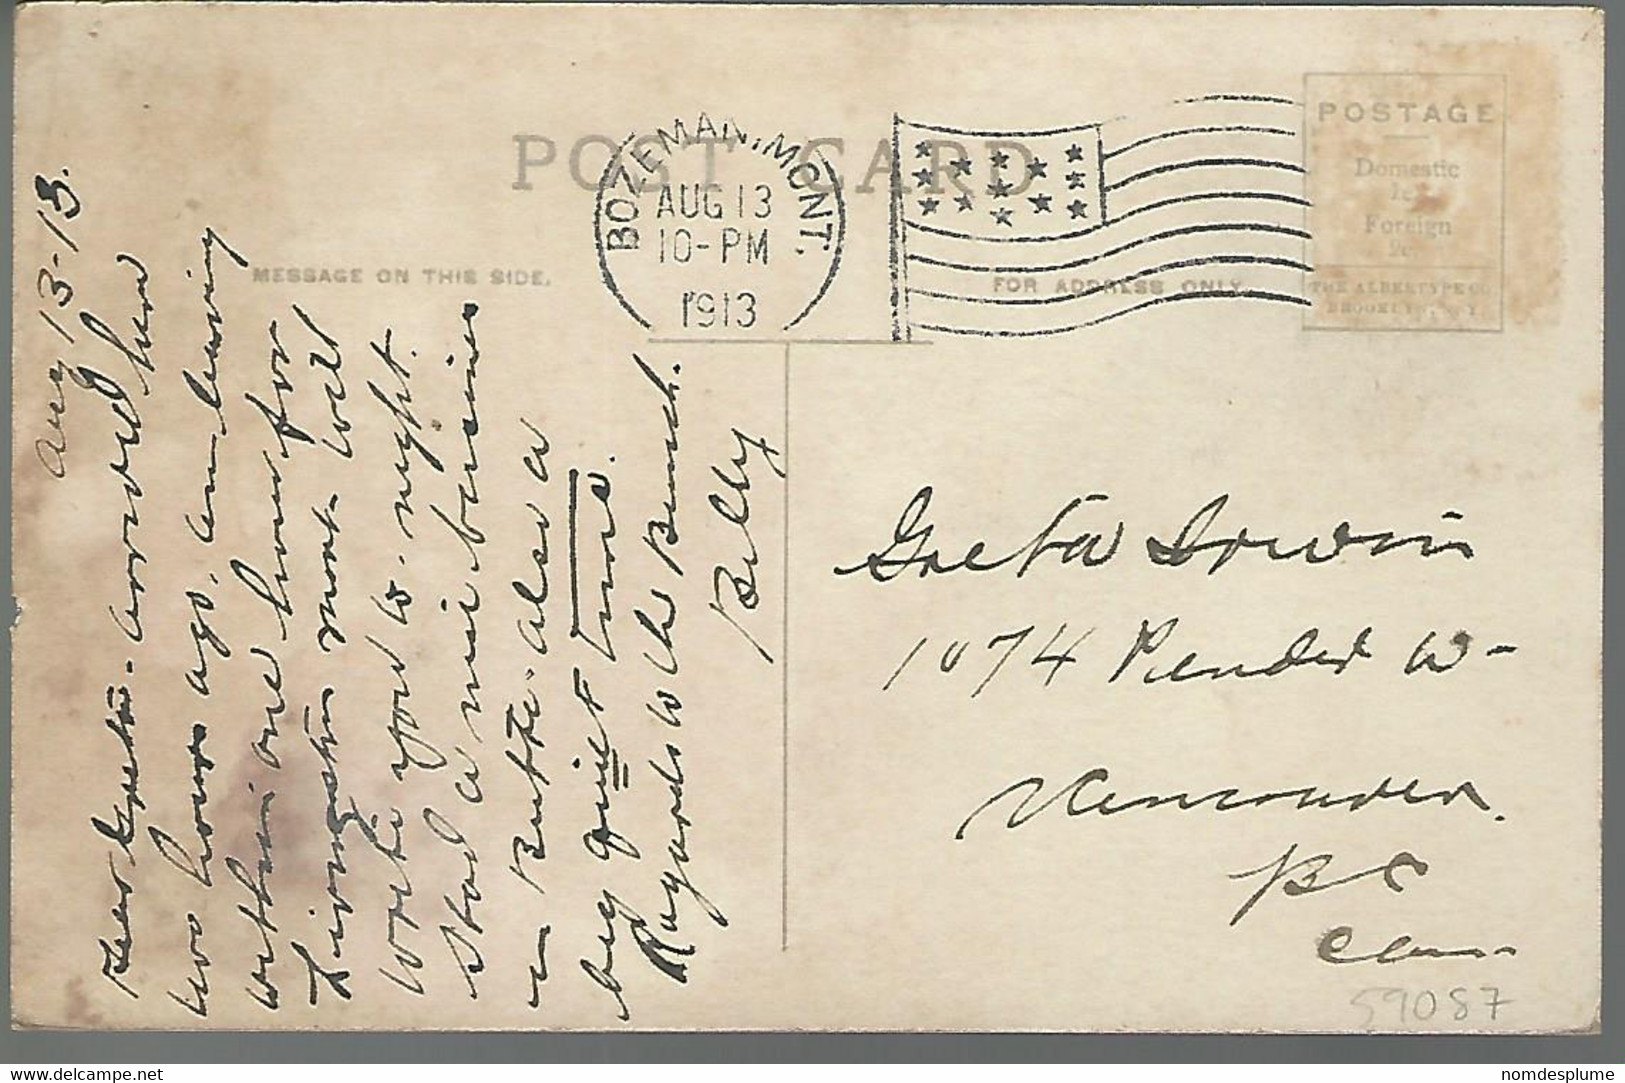 POST CARD
MESSAGE ON THIS SIDE.
FOR ADDRESS ONLY.
BOZEMAN, MONT.
AUG 13
10-PM
1913
POSTAGE
Domestic
1c
Foreign
2c
THE ALBERTYPE CO
BROOKLYN, N.Y.
Aug 13-13.
Dear Greta - arrived here
two hours ago. am leaving
within one hour for
Livingston Mont. Will
write you to-night.
Had a nice business
in Butte. also a
big quiet time.
Regards to the Bunch.
Billy
Greta Irwin
1074 Pender W-
Vancouver.
BC
Can-
59087
delcampe.net
nomdesplume